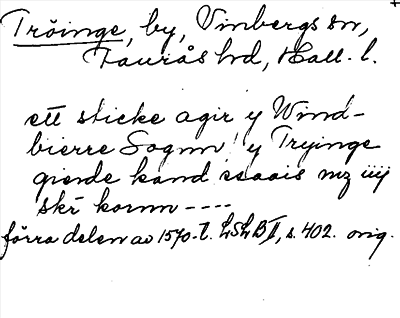 Tröinge, by, Vinbergs sn,
Faurås hd, Hall. l.
ett sticke agir y Wind-
bierre Sognn! y Tryinge
gierde kand saais mz iiij
skr kornn ----
förra delen av 1570-t. LSLB II, s. 402. orig.